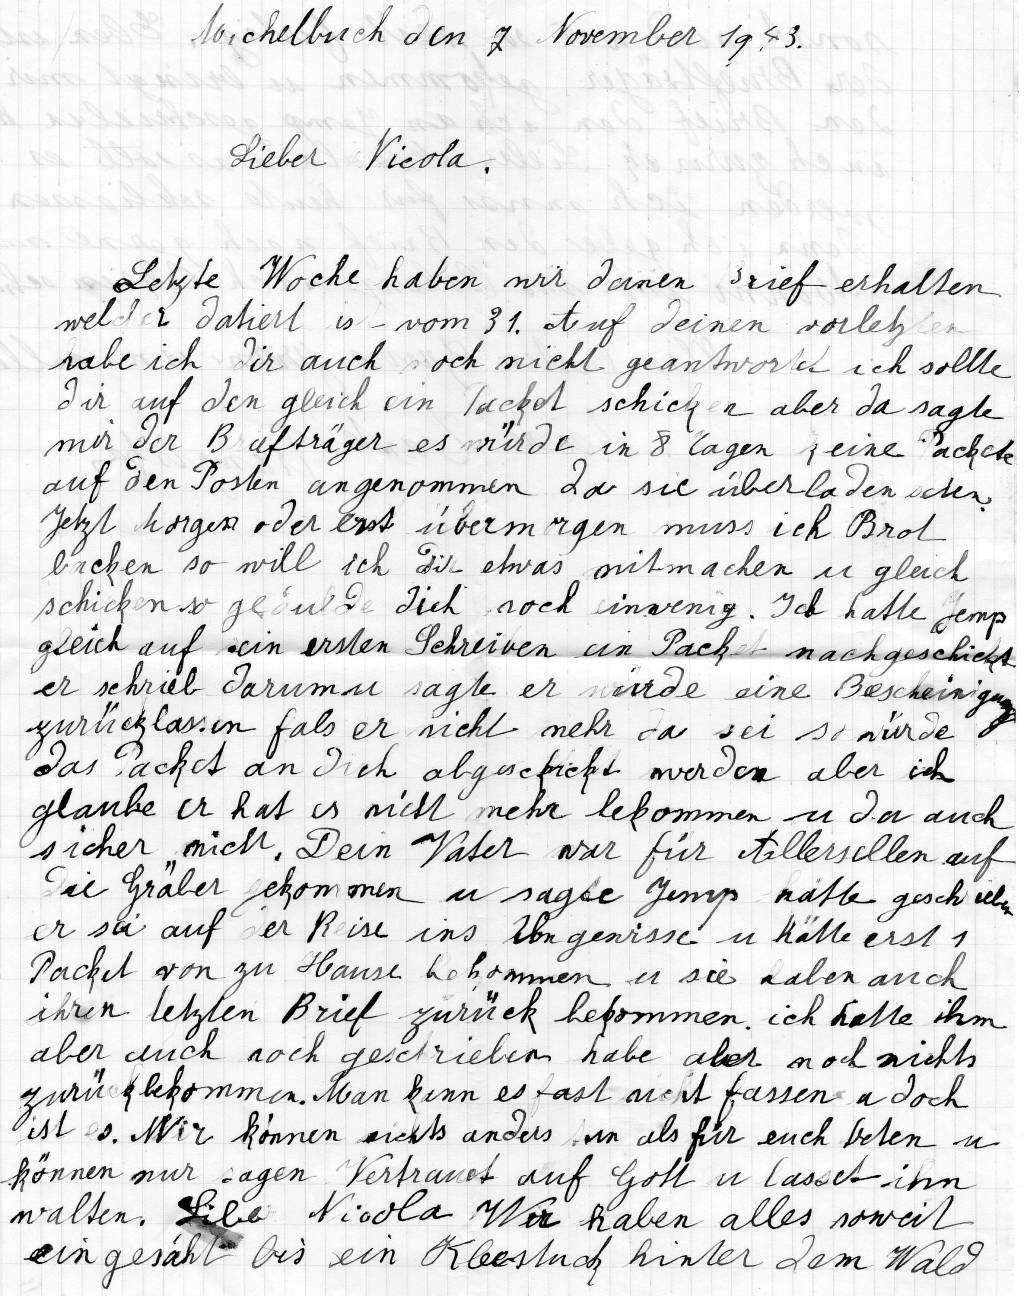 Michelbuch den 7 November 1943.
Lieber Nicola.
Letzte Woche haben wir deinen Brief erhalten
welcher datiert ist vom 31. Auf deinen vorletzten
habe ich dir auch noch nicht geantwortet ich sollte
dir auf den gleich ein Packet schicken aber da sagte
mir der Briefträger es würde in 8 Tagen keine Packete
auf den Posten angenommen da sie überladen seien.
Jetzt Morgen oder erst übermorgen muss ich Brot
backen so will ich Dir etwas mitmachen u gleich
schicken so gedulde dich noch einwenig. Ich hatte Jemp
gleich auf sein ersten Schreiben ein Packet nachgeschickt
er schrieb darum u sagte er würde eine Bescheinigung
zurücklassen fals er nicht mehr da sei so würde
das Packet an dich abgeschickt werden aber ich
glaube er hat es nicht mehr bekommen u du auch
sicher nicht. Dein Vater war für Allersellen auf
die Gräber gekommen u sagte Jemp hätte geschrieben
er sei auf der Reise ins Ungewisse u hätte erst 1
Packet von zu Hause bekommen u sie haben auch
ihren letzten Brief zurück bekommen. ich hatte ihm
aber auch noch geschrieben habe aber noch nichts
zurückbekommen. Man kann es fast nicht fassen u doch
ist es. Wir können nichts anders tun als für euch beten u
können nur sagen Vertrauet auf Gott u lasset ihn
walten. Lieber Nicola Wir haben alles soweit
eingesäht bis ein Kleestuck hinter dem Wald